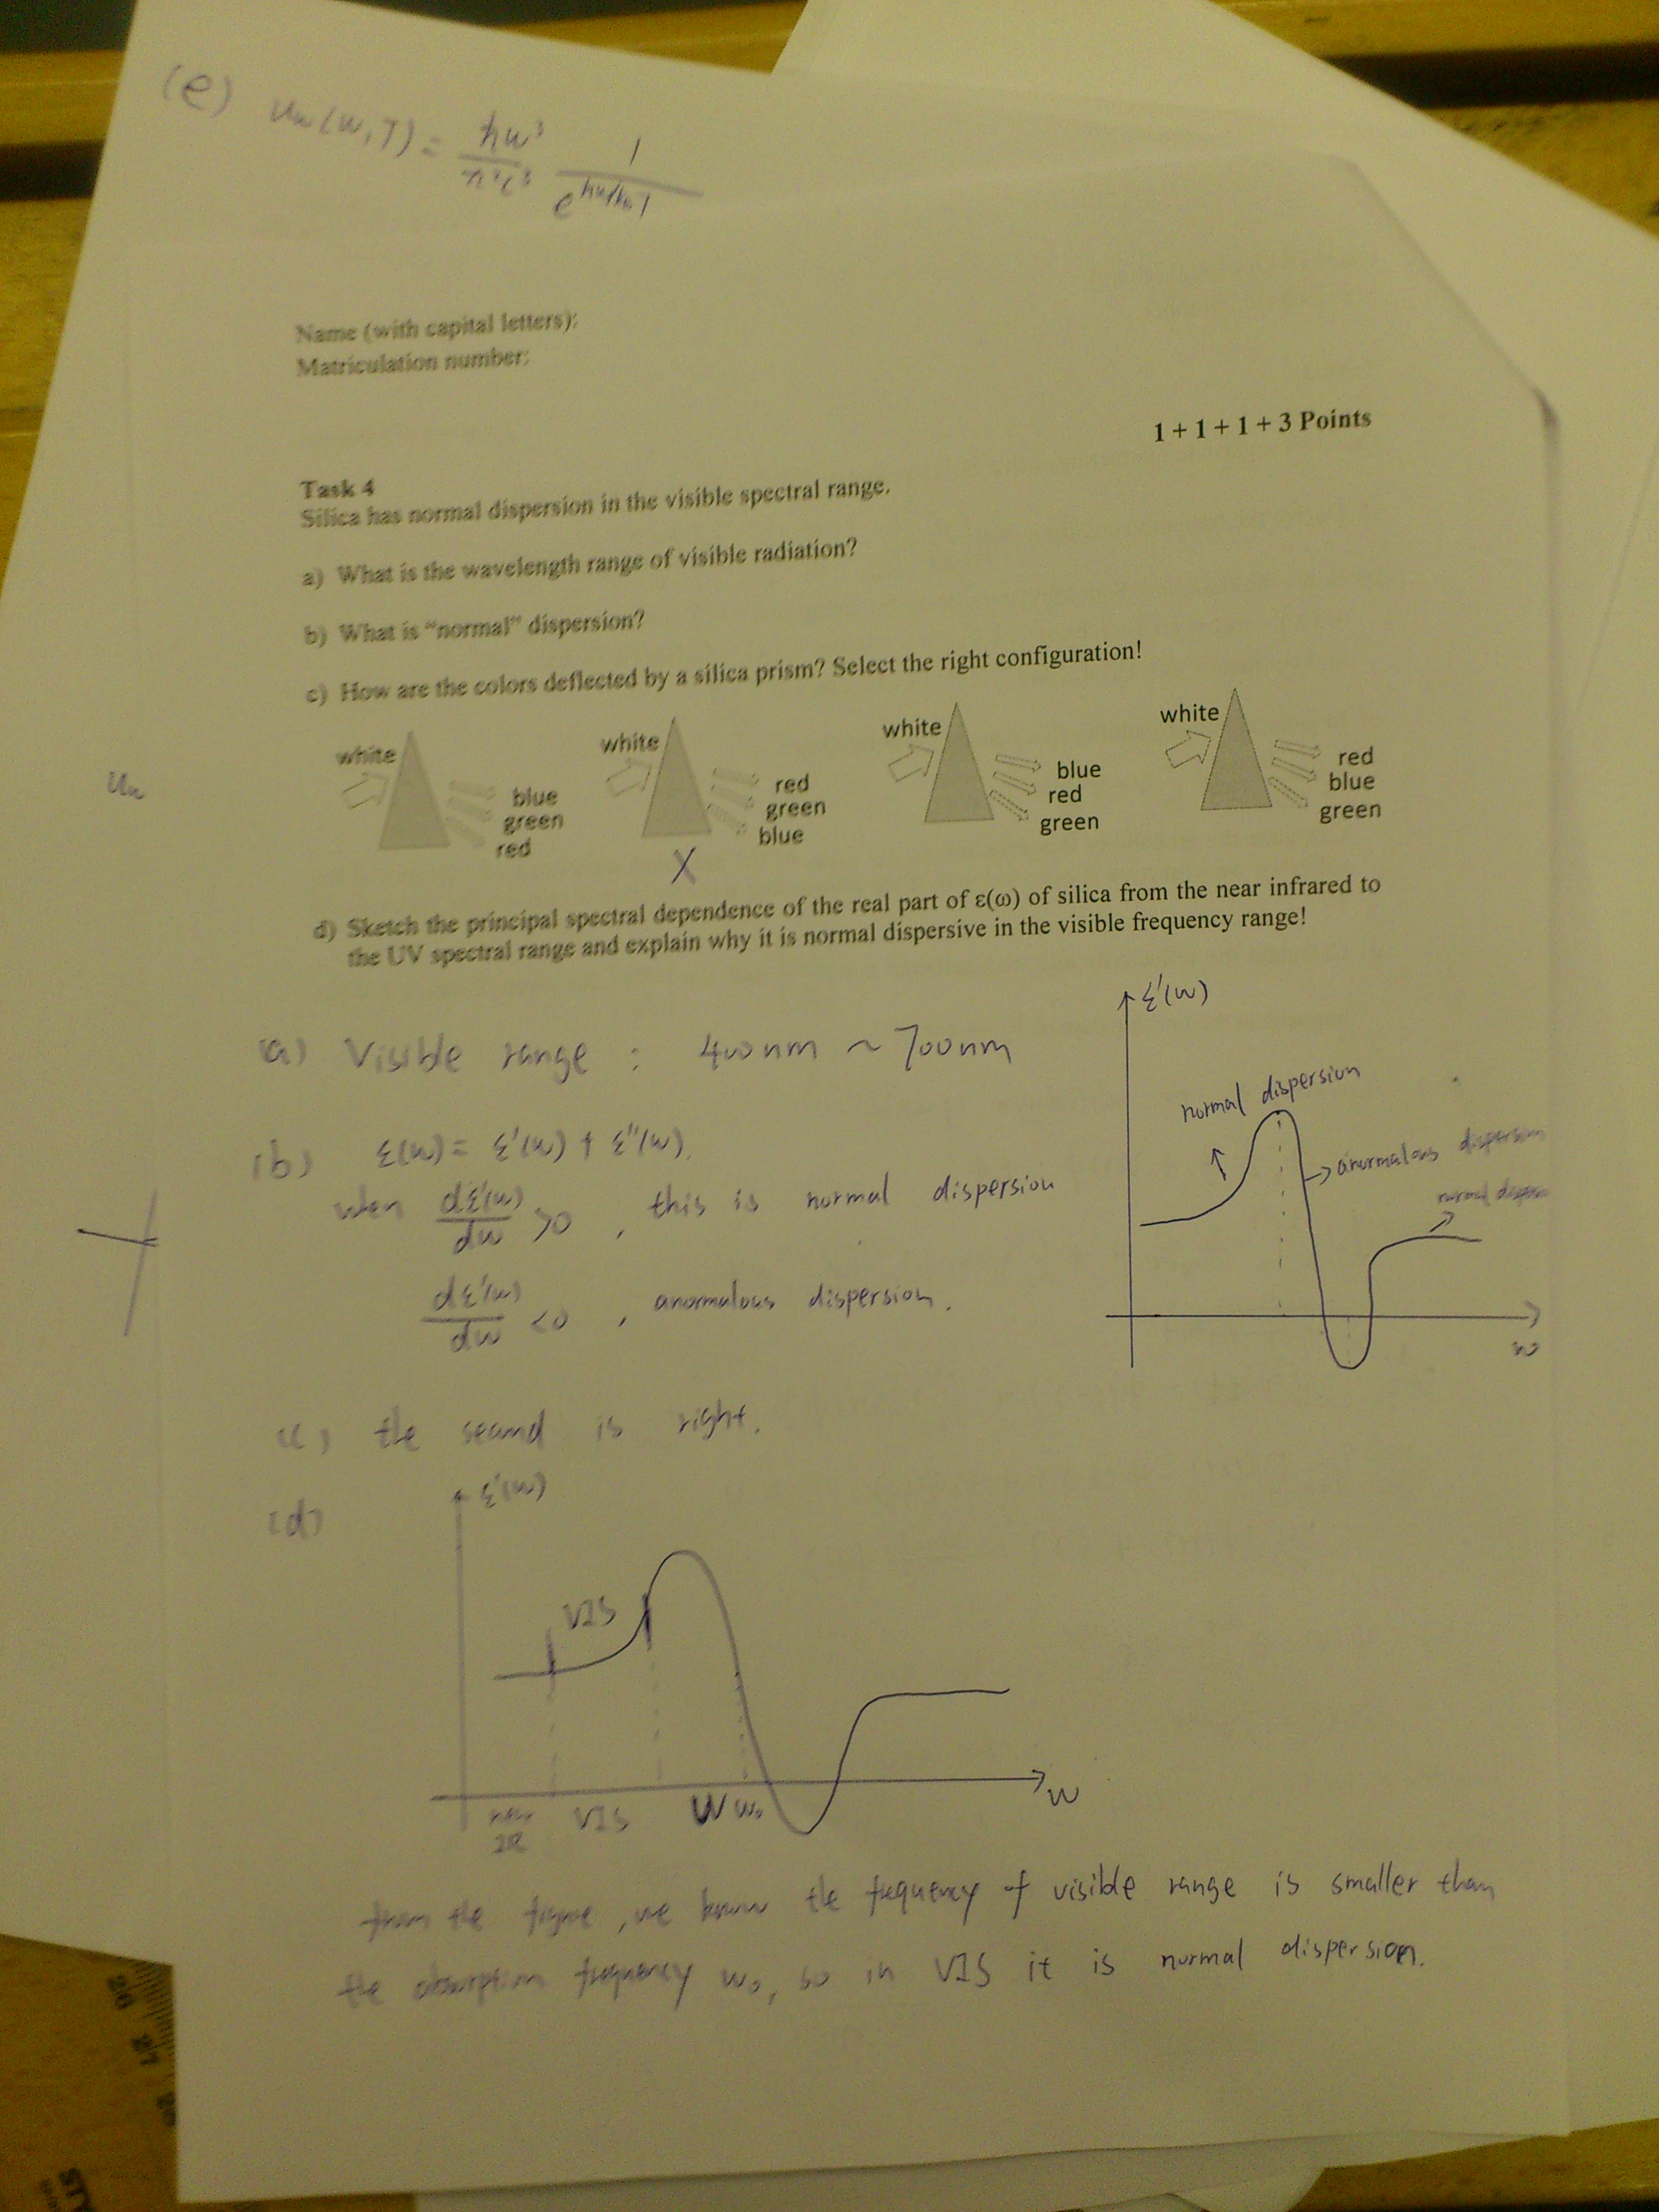 (e) uω(ω,T) = ħω³ / π²c³ 1 / e
Name (with capital letters):
Matriculation number:
1 + 1 + 1 + 3 Points
Task 4
Silica has normal dispersion in the visible spectral range.
a) What is the wavelength range of visible radiation?
b) What is “normal” dispersion?
c) How are the colors deflected by a silica prism? Select the right configuration!
white white white white
blue red blue red
green green red blue
red blue green green
X
d) Sketch the principal spectral dependence of the real part of ε(ω) of silica from the near infrared to
the UV spectral range and explain why it is normal dispersive in the visible frequency range!
ε'(ω)
(a) Visible range : 400nm ~ 700nm
normal dispersion
(b) ε(ω) = ε'(ω) + ε''(ω).
anormalous dispersion
when dε'(ω)/dω >0 , this is normal dispersion
normal
dε'(ω)/dω <0 , anomalous dispersion.
ω
(c) the second is right.
(d)
ε'(ω)
VIS
near VIS W ω₀ ω
IR
from the figure, we know the frequency of visible range is smaller than
the absorption frequency ω₀, so in VIS it is normal dispersion.